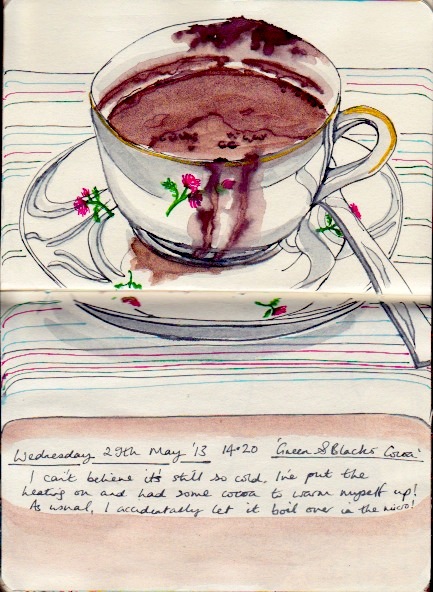 Wednesday 29th May '13 14•20 'Green & Blacks Cocoa'
I can't believe it's still so cold. I've put the
heating on and had some cocoa to warm myself up!
As usual, I accidentally let it boil over in the micro!